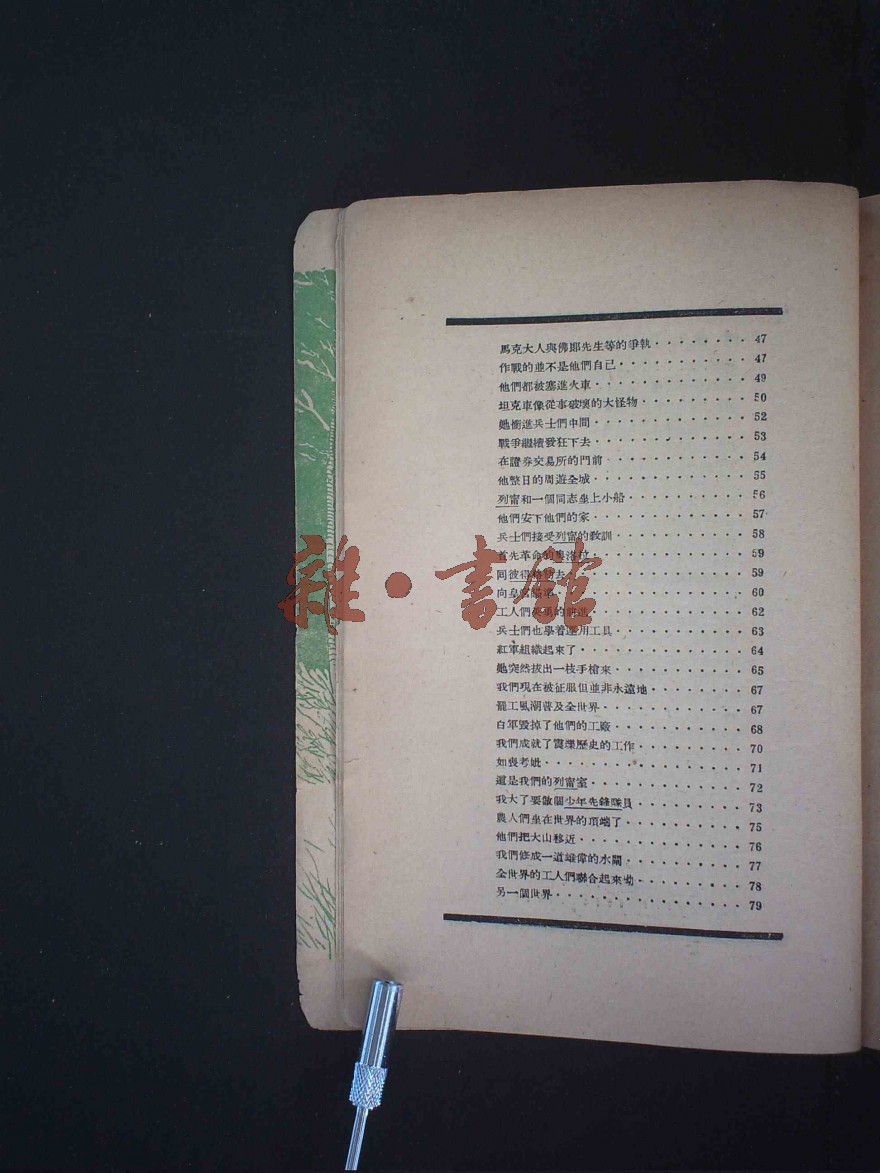 馬克大人與佛耶先生等的爭執・・・・・・・・47
作戰的並不是他們自己・・・・・・・・・・・47
他們都被塞進火車・・・・・・・・・・・・・49
坦克車像從事破壞的大怪物・・・・・・・・・50
她衝進兵士們中間・・・・・・・・・・・・・52
戰爭繼續發狂下去・・・・・・・・・・・・・53
在證券交易所的門前・・・・・・・・・・・・54
他整日的周遊全城・・・・・・・・・・・・・55
列甯和一個同志坐上小船・・・・・・・・・・56
他們安下他們的家・・・・・・・・・・・・・57
兵士們接受列甯的教訓・・・・・・・・・・・58
首先革命的・・・・・・・・・・・・59
同彼得・・・・・・・・・・・・59
向皇宮・・・・・・・・・・・・60
工人們・・・・・・・・・・・・62
兵士們也學着運用工具・・・・・・・・・・・63
紅軍組織起來了・・・・・・・・・・・・・・64
她突然拔出一枝手槍來・・・・・・・・・・・65
我們現在被征服但並非永遠地・・・・・・・・67
罷工風潮普及全世界・・・・・・・・・・・・67
白軍毀掉了他們的工廠・・・・・・・・・・・68
我們成就了震爍歷史的工作・・・・・・・・・70
如喪考妣・・・・・・・・・・・・・・・・・71
這是我們的列甯室・・・・・・・・・・・・・72
我大了要做個少年先鋒隊員・・・・・・・・・73
農人們坐在世界的頂端了・・・・・・・・・・75
他們把大山移近・・・・・・・・・・・・・・76
我們修成一道雄偉的水閘・・・・・・・・・・77
全世界的工人們聯合起來喲・・・・・・・・・78
另一個世界・・・・・・・・・・・・・・・・79
雜・書館